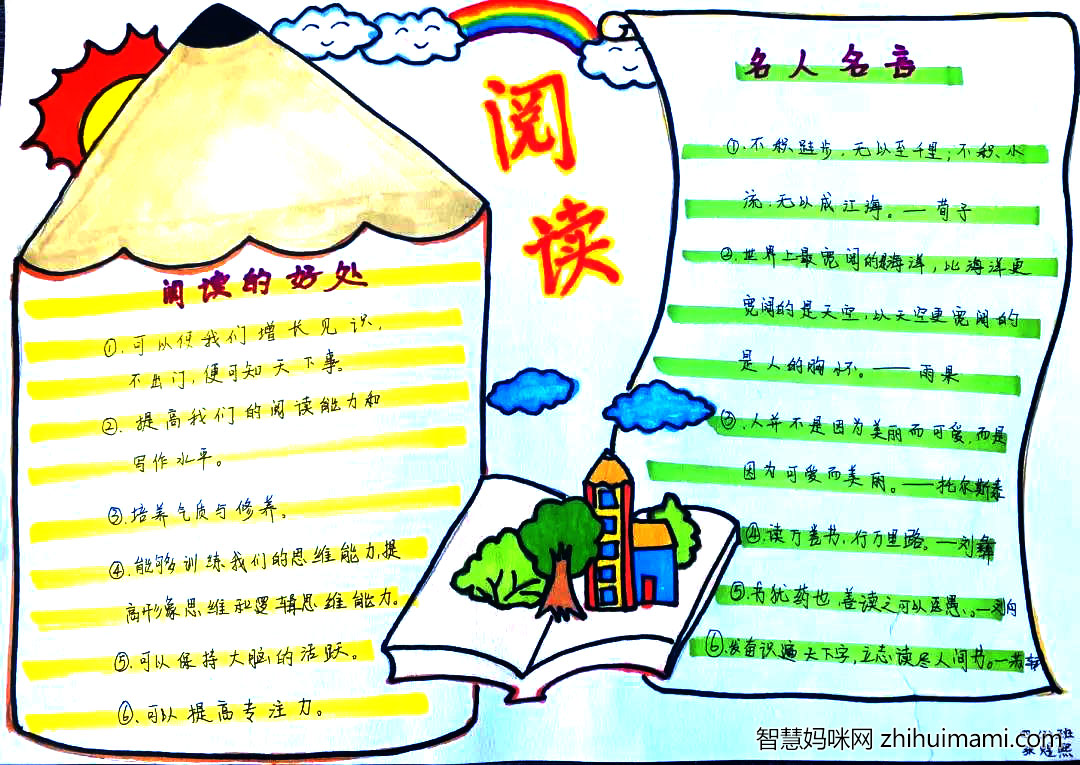 阅读
阅读的好处
①.可以使我们增长见识,
不出门,便可知天下事。
②.提高我们的阅读能力和
写作水平。
③.培养气质与修养。
④.能够训练我们的思维能力,提
高形象思维和逻辑思维能力。
⑤.可以保持大脑的活跃。
⑥.可以提高专注力。
名人名言
①.不积跬步,无以至千里;不积小
流,无以成江海。—荀子
②.世界上最宽阔的海洋,比海洋更
宽阔的是天空,以天空更宽阔的
是人的胸怀。——雨果
③.人并不是因为美丽而可爱,而是
因为可爱而美丽。——托尔斯泰
④.读万卷书,行万里路。—刘彝
⑤.书犹药也,善读之可以医愚。—刘向
⑥.发奋识遍天下字,立志读尽人间书。—苏轼
智慧妈咪网 zhihuimami.com